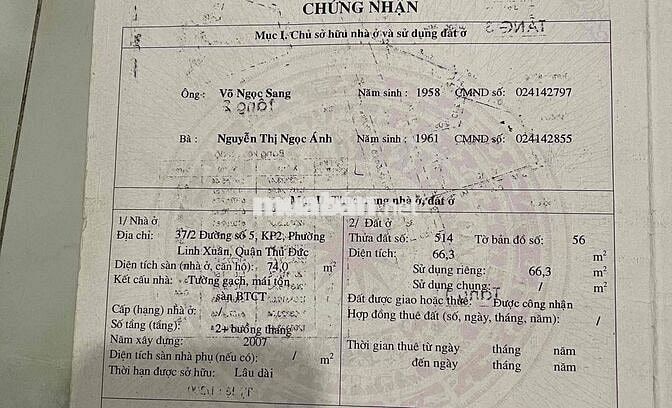 CHỨNG NHẬN
Mục I. Chủ sở hữu nhà ở và sử dụng đất ở
TẦNG 3
Ông : Võ Ngọc Sang Năm sinh : 1958 CMND số: 024142797
Tầng 2
Bà : Nguyễn Thị Ngọc Ánh Năm sinh : 1961 CMND số: 024142855
nhà ở, đất ở
muaban.net
1/ Nhà ở
Địa chỉ: 37/2 Đường số 5, KP2, Phường
Linh Xuân, Quận Thủ Đức
Diện tích sàn (nhà ở, căn hộ): 74,0 m²
Kết cấu nhà: Tường gạch, mái tôn,
sàn BTCT
Cấp (hạng) nhà ở: /
Số tầng (tầng): 2+ buồng thang
Năm xây dựng: 2007
Diện tích sàn nhà phụ (nếu có): / m²
Thời hạn được sở hữu: Lâu dài
2/ Đất ở
Thửa đất số: 514 Tờ bản đồ số: 56
Diện tích: 66,3 m²
Sử dụng riêng: 66,3 m²
Sử dụng chung: / m²
Đất được giao hoặc thuê: Được công nhận
Hợp đồng thuê đất (số, ngày, tháng, năm): /
Thời gian thuê từ ngày tháng năm
đến ngày tháng năm